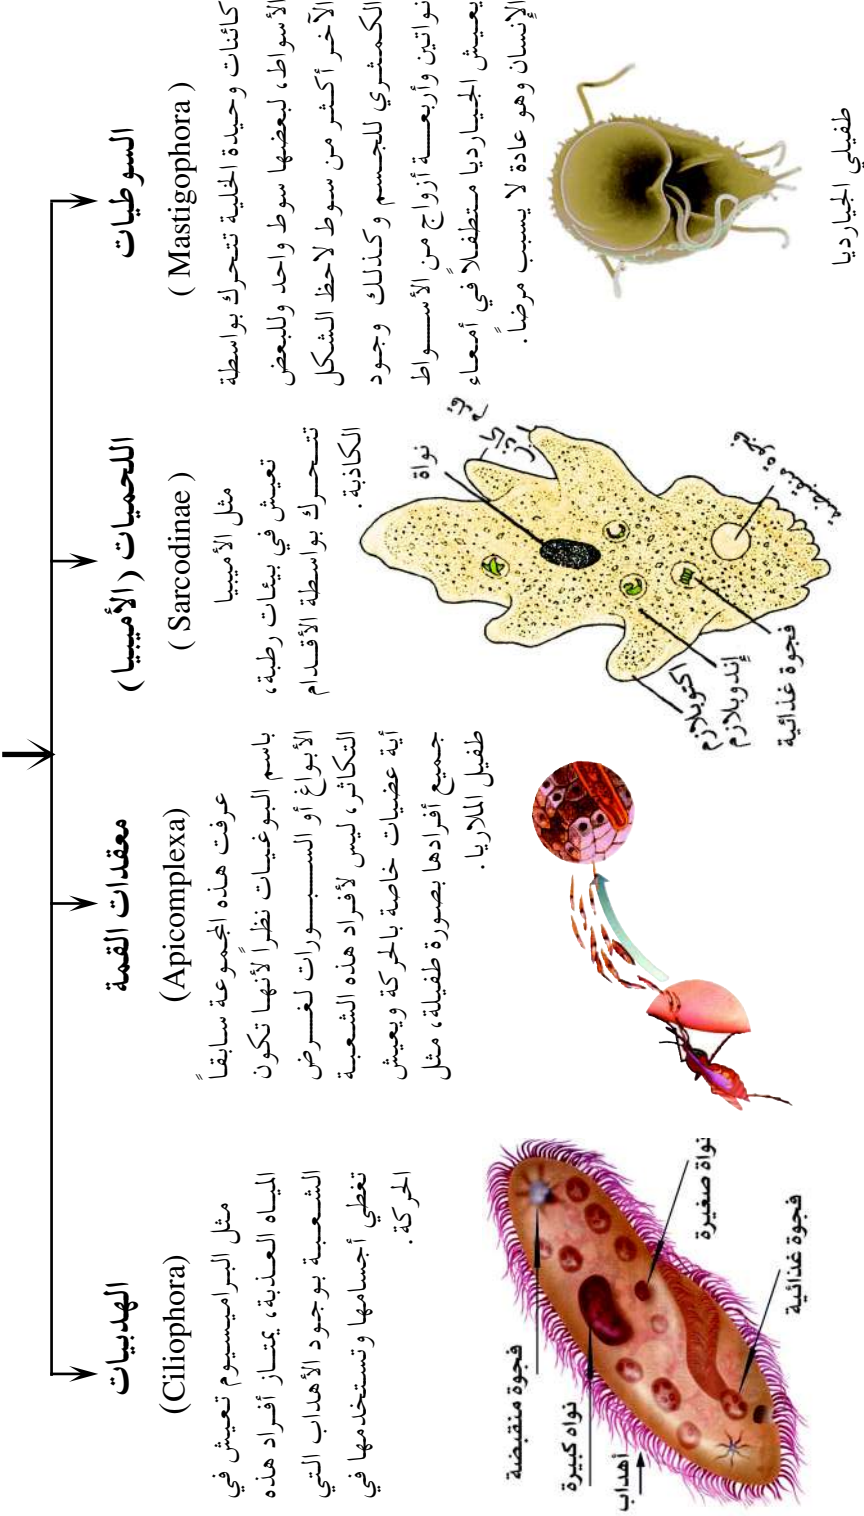 السوطيات
( Mastigophora )
كائنات وحيدة الخلية تتحرك بواسطة
الأسواط، لبعضها سوط واحد وللبعض
الآخر أكثر من سوط لاحظ الشكل
الكمثري للجسم وكذلك وجود
نواتين وأربعة أزواج من الأسواط
يعيش الجيارديا متطفلاً في أمعاء
الإنسان وهو عادة لا يسبب مرضاً.
طفيلي الجيارديا
اللحميات (الأميبيا)
( Sarcodinae )
مثل الأميبيا
تعيش في بيئات رطبة،
تتحرك بواسطة الأقدام
الكاذبة.
قدم كاذبة
نواة
فجوة منقبضة
اكتوبلازم
إندوبلازم
فجوة غذائية
معقدات القمة
(Apicomplexa)
عرفت هذه المجموعة سابقاً
باسم البوغيات نظراً لأنها تكون
الأبواغ أو السبورات لغرض
التكاثر، ليس لأفراد هذه الشعبة
أية عضيات خاصة بالحركة ويعيش
جميع أفرادها بصورة طفيلة، مثل
طفيل الملاريا.
الهدبيات
(Ciliophora)
مثل البراميسيوم تعيش في
المياه العذبة، يمتاز أفراد هذه
الشعبة بوجود الأهداب التي
تغطي أجسامها وتستخدمها في
الحركة.
فجوة منقبضة
نواه كبيرة
أهداب
نواة صغيرة
فجوة غذائية